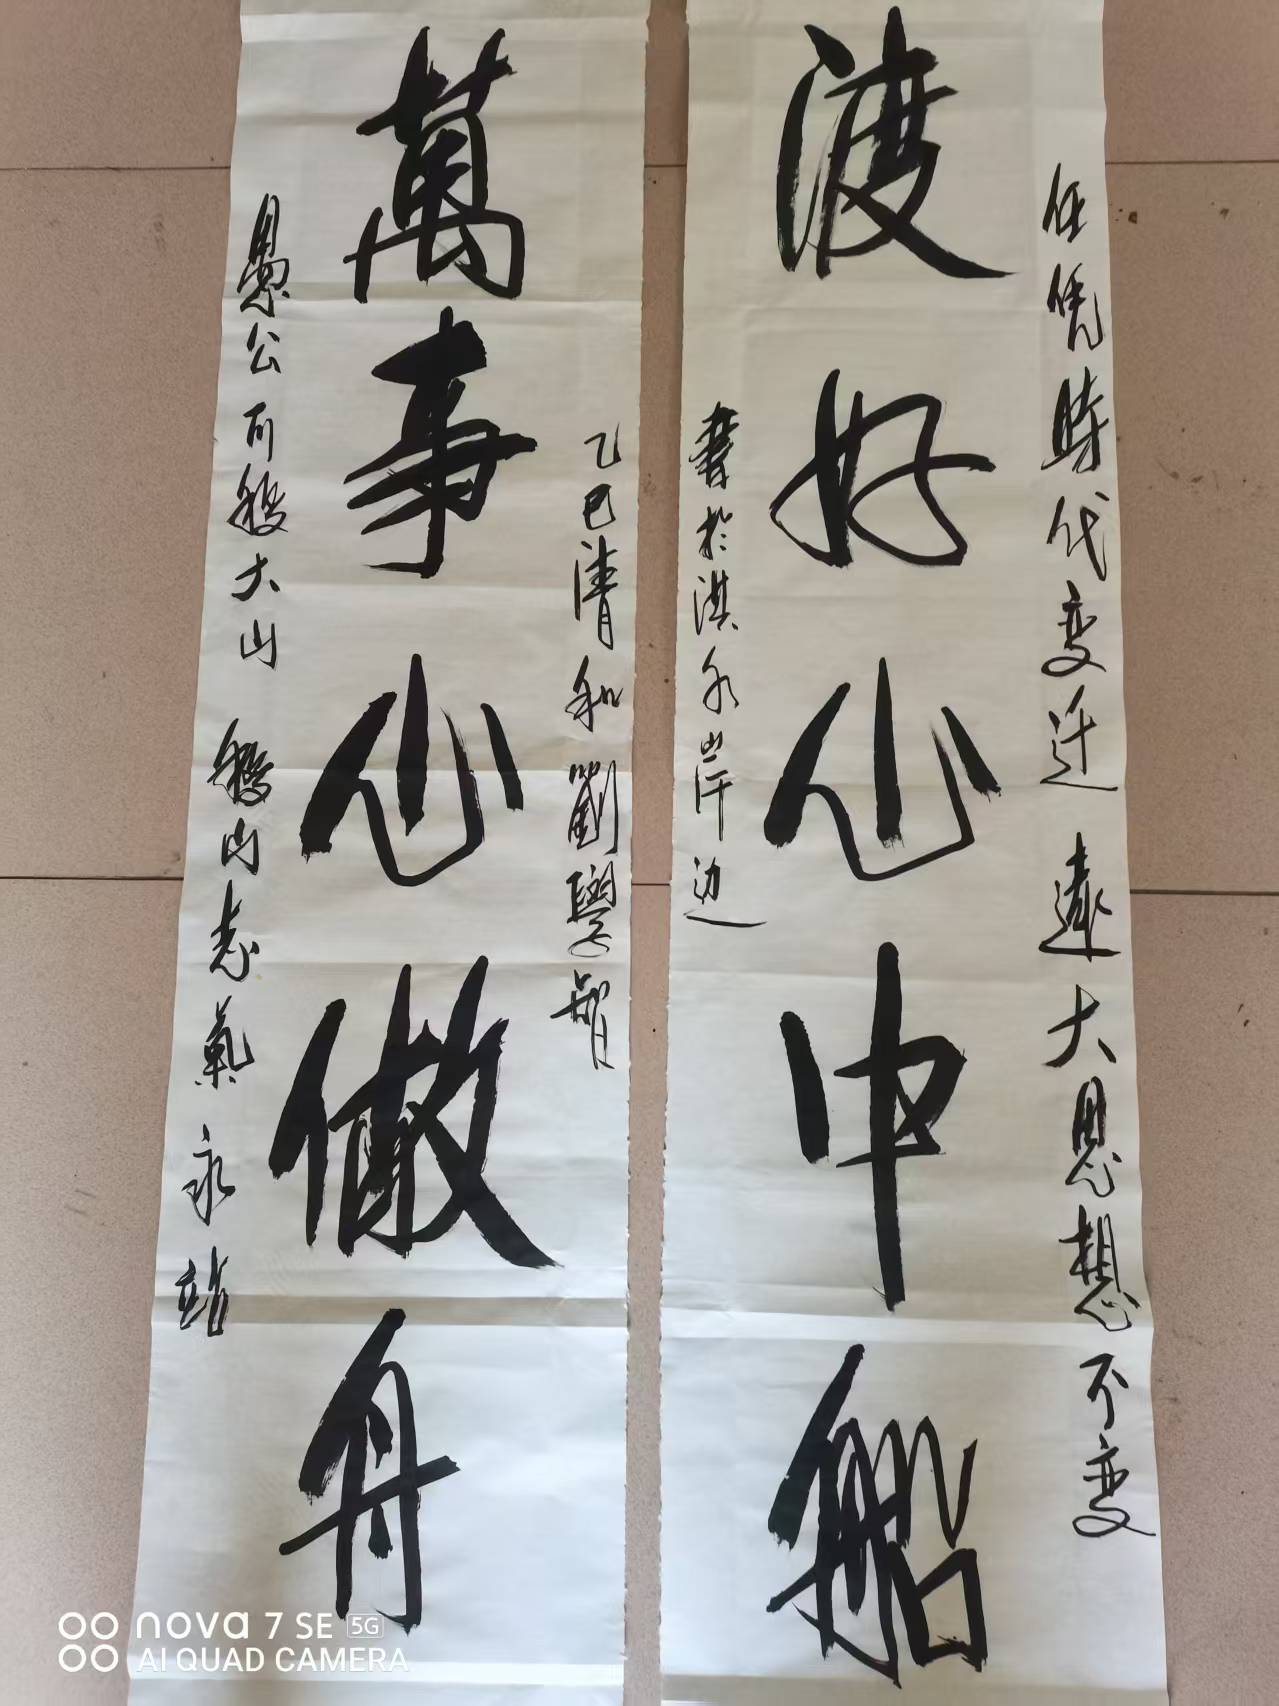 任凭時代变迁 遠大思想不变
渡好心中船
書於淇水岸边
乙巳清和劉學智
萬事心做舟
愚公可移大山 移山志氣永
nova 7 SE 5G
AI QUAD CAMERA